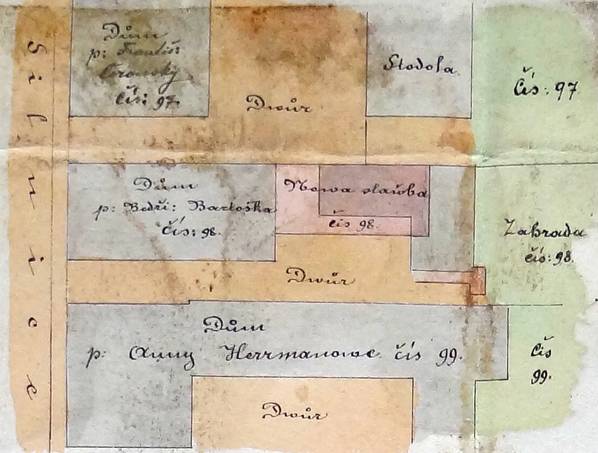 Silnice
Dům
p: Frantiś:
čís: 97.
Dwůr
Stodola
Čís: 97
Dům
p: Bedři: Bartoška
čís: 98.
Nowa stawba
čís 98.
Zahrada
čís: 98.
Dwůr
Dům
p: Anny Herrmanowe čís 99.
čís
99.
Dwůr